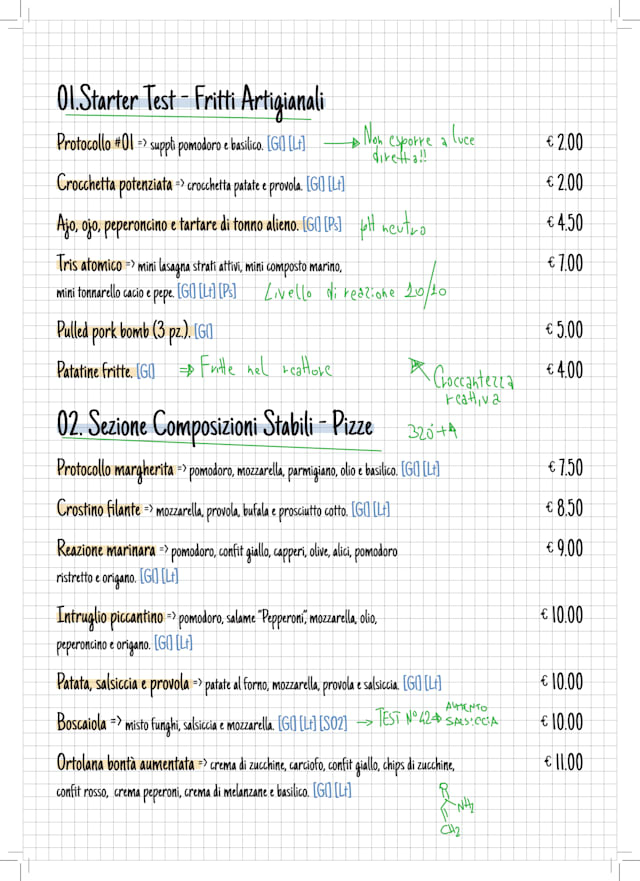 01.Starter Test - Fritti Artigianali
Protocollo #01 => supplì pomodoro e basilico. [Gl] [Lt] Non esporre a luce € 2.00
diretta!!
Crocchetta potenziata => crocchetta patate e provola. [Gl] [Lt] € 2.00
Ajo, ojo, peperoncino e tartare di tonno alieno. [Gl] [Ps] pH neutro € 4.50
Tris atomico => mini lasagna strati attivi, mini composto marino, € 7.00
mini tonnarello cacio e pepe. [Gl] [Lt] [Ps] Livello di reazione 10/10
Pulled pork bomb (3 pz.). [Gl] € 5.00
Patatine fritte. [Gl] => Fritte nel reattore € 4.00
Croccantezza
reattiva
02. Sezione Composizioni Stabili - Pizze
Protocollo margherita => pomodoro, mozzarella, parmigiano, olio e basilico. [Gl] [Lt] € 7.50
Crostino filante => mozzarella, provola, bufala e prosciutto cotto. [Gl] [Lt] € 8.50
Reazione marinara => pomodoro, confit giallo, capperi, olive, alici, pomodoro € 9.00
ristretto e origano. [Gl] [Lt]
Intruglio piccantino => pomodoro, salame "Pepperoni", mozzarella, olio, € 10.00
peperoncino e origano. [Gl] [Lt]
Patata, salsiccia e provola => patate al forno, mozzarella, provola e salsiccia. [Gl] [Lt] € 10.00
Boscaiola => misto funghi, salsiccia e mozzarella. [Gl] [Lt] [SO2] → TEST N°42 => AUMENTO € 10.00
SALSICCIA
Ortolana bontà aumentata => crema di zucchine, carciofo, confit giallo, chips di zucchine, € 11.00
confit rosso, crema peperoni, crema di melanzane e basilico. [Gl] [Lt]
NH2
CH2